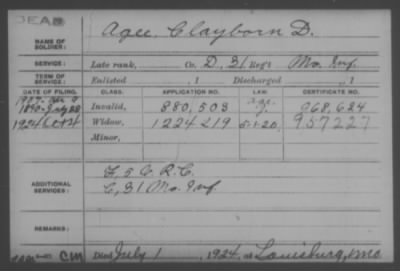 DEAD
NAME OF SOLDIER: Agee, Clayborn D.
SERVICE: Late rank, Co. D, 31 Reg't Mo. Inf.
TERM OF SERVICE: Enlisted , 1 Discharged , 1
DATE OF FILING. CLASS. APPLICATION NO. LAW. CERTIFICATE NO.
1890 July 28 Invalid, 880,503 age. 968,624
1924 Oct 4 Widow, 1224219 5-1-20, 957227
Minor,
ADDITIONAL SERVICES: F, 5 C. R. C.
C, 31 Mo. Inf
REMARKS:
CM Died July 1, 1924, at Louisburg, Mo